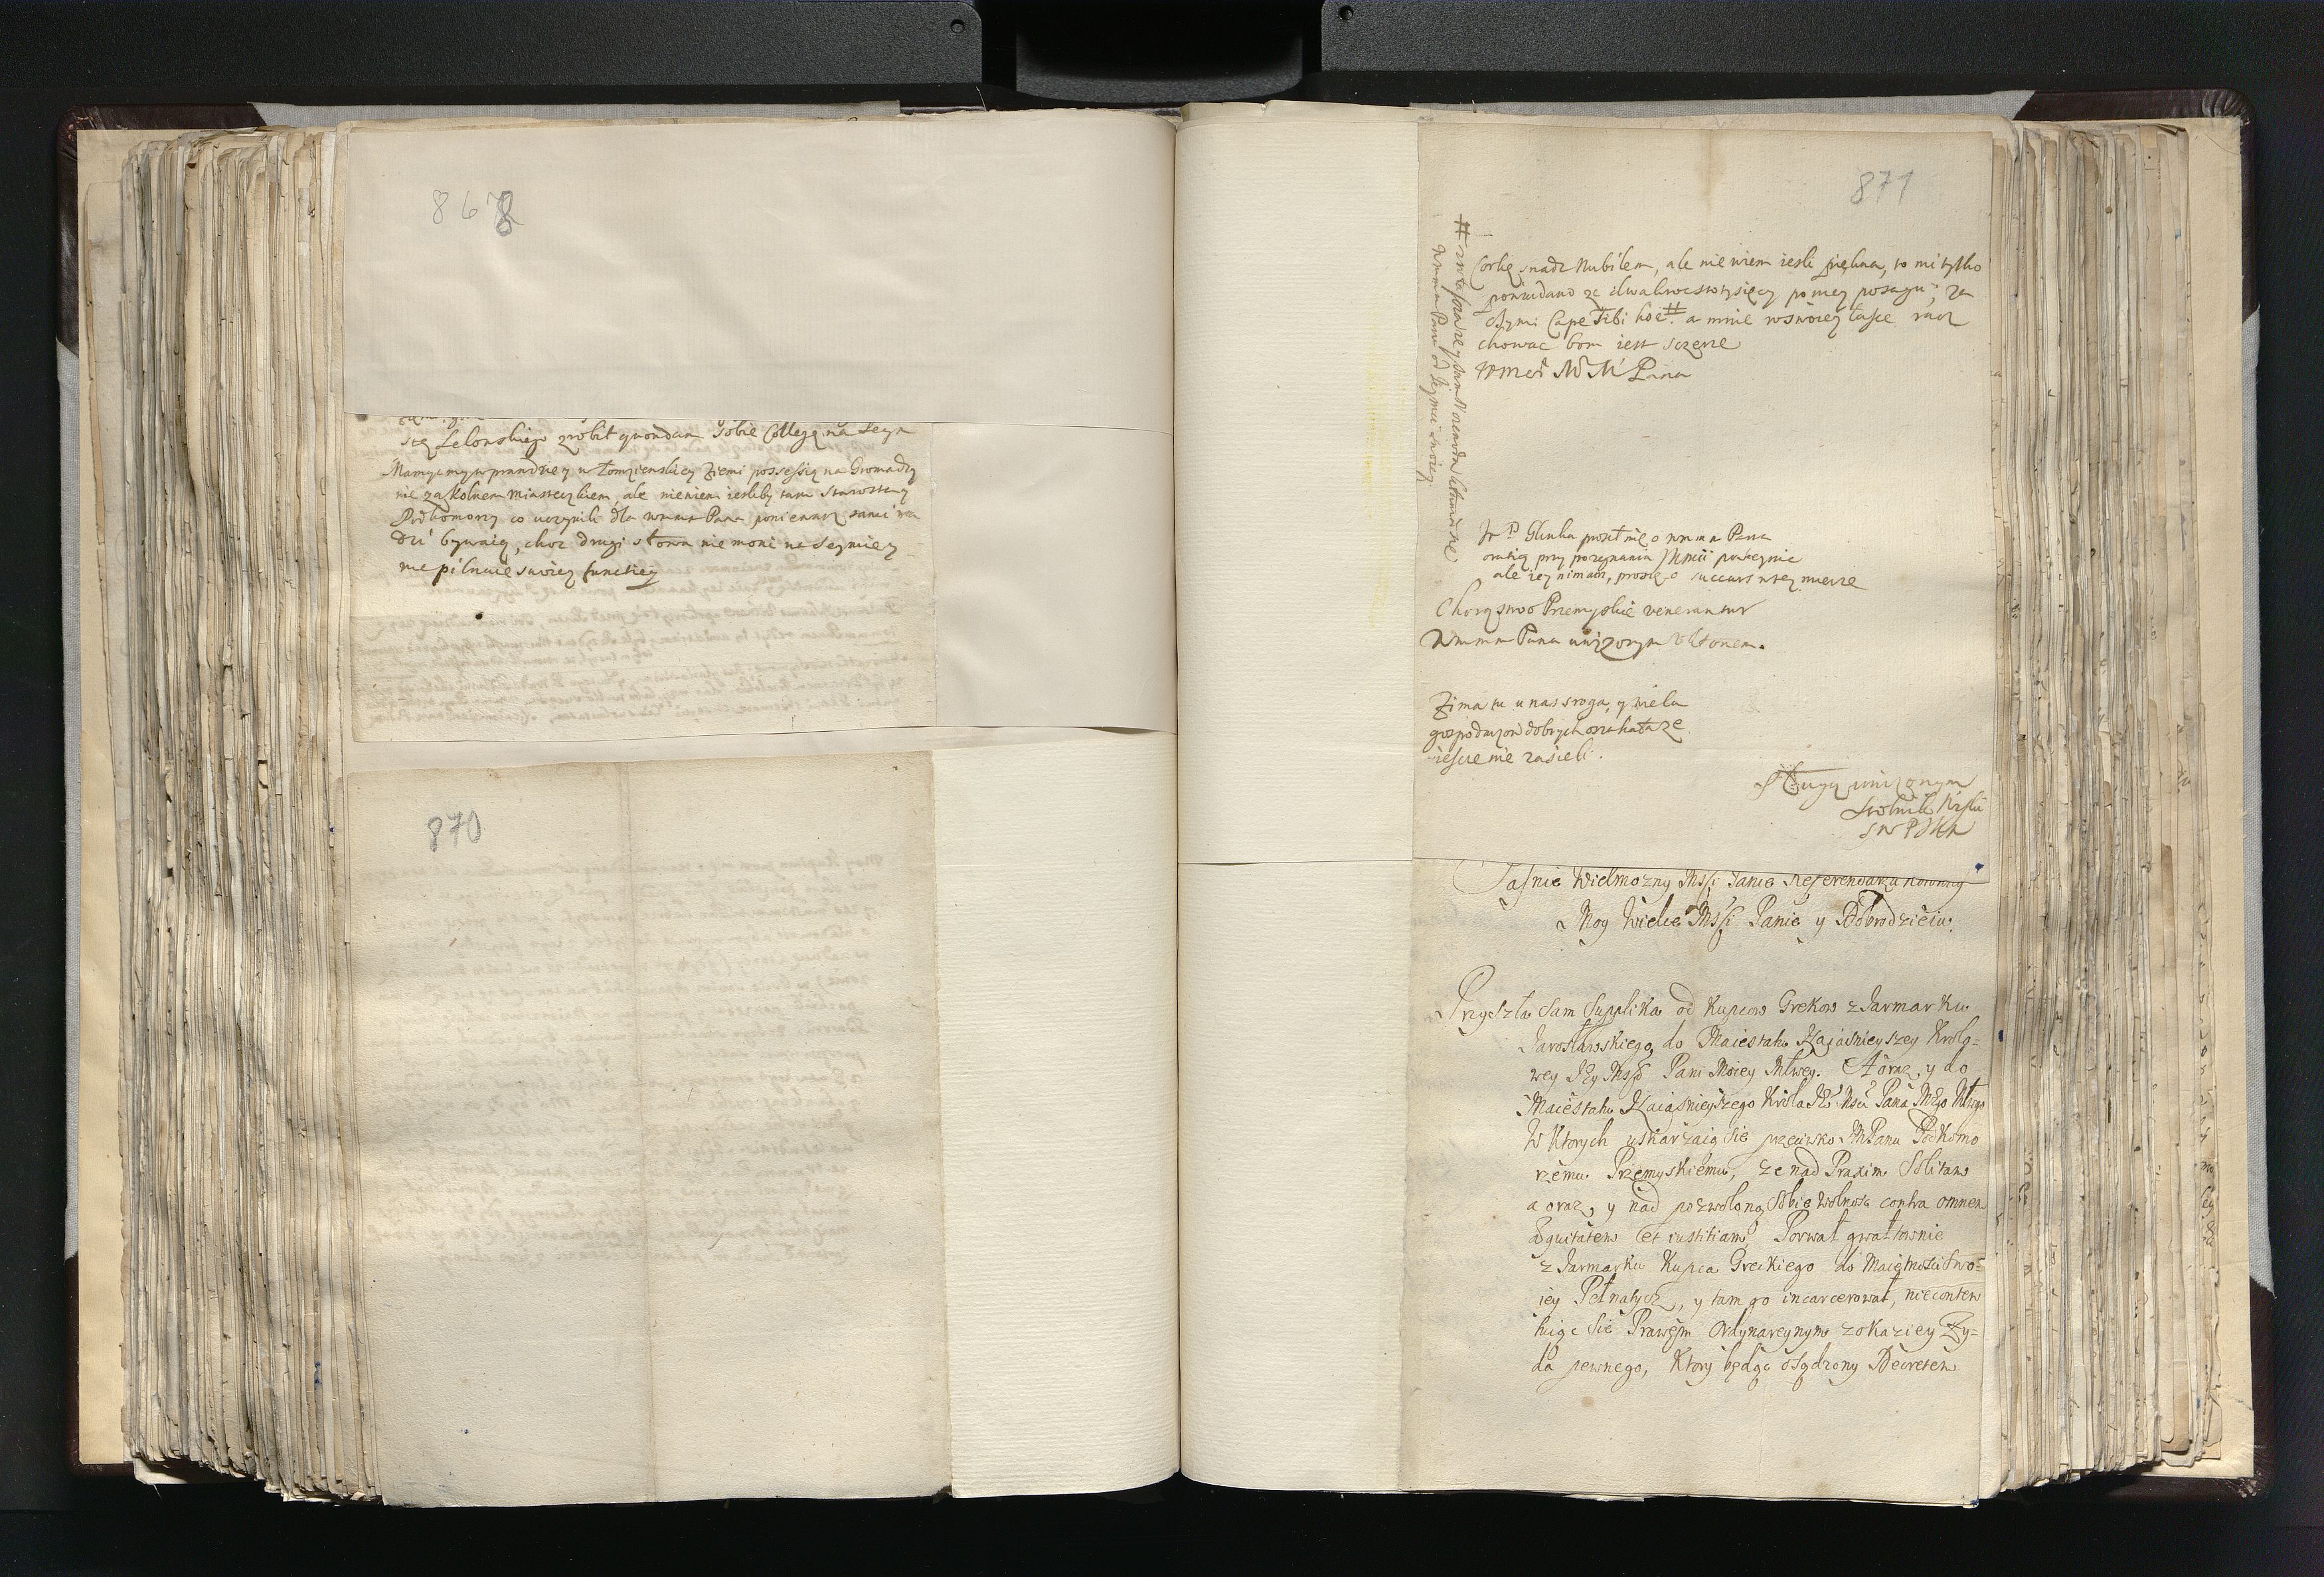 8678
stę Zelonskiego zrobił quondam sobie Collegę na Seym
Mamyc my w prawdzie y w Łomzienskiey Ziemi possessią na Gromadzy
nie za Kolnem Miasteczkiem, ale niewiem iesliby tam Starosta y
Podkomorzy co uczynili dla wmm Pana poniewasz sami ra
dzi bywaią, choc drugi słowa nie mowi na Seymie y
nie pilnuie swoiey functiey
870
871
Corkę snadz Nubilem, ale nie wiem iesli piękna, to mi tylko
powiadano ze dwakroc stotysięcy po niey posagu; za
czymi Cape Tibi hoc # a mnie w swoiey łasce racz
chowac bom iest sczerze
WMci M M Pana
wmm Panu od Jeymci swoiey
Jr P Glinka prosił mię o wmm Pana
oratią przy pozegnaniu
ale iey nimasz, proszę o succurs w tey mierze
Chorąstwo Przemyskie venerantur
Wmm Pana unizonym Ukłonem.
Zima tu u nas sroga, y wielu
gospodarzow dobrych oszukała ze
iescze nie zasieli.
Sługą unizonym
Stolnik
Jasnie Wielmozny Mssi Panie Referendarzu Koronny
Moy Wielce Mssi Panie y Dobrodzieiu.
Przyszła Sam Supplika od Kupcow Grekow z Jarmarku
Jarosławskiego, do Maiestatu Naiasnieyszey Krolo=
wey Jey Mssi Pani Moiey Młwey. A oraz, y do
Maiestatu Naiasnieyszego Krola Je° Msci Pana Mego Młwgo
W Ktorych uskarzaią Sie przeciwko JMPanu Podkomo
rzemu Przemyskiemu, ze nad Praxim Solitam
a oraz, y nad pozwoloną Sobie Wolnosc contra omnem
aequitatem et iustitiam, Porwał gwałtownie
z Jarmarku Kupca Greckiego do Maiętnosci Swo=
iey Pełnatycz, y tam go incarcerował, niecontem
tuiąc Sie Prawem Ordynarynym z okaziey Zy=
da pewnego, Ktory będąc osądzony Decretem